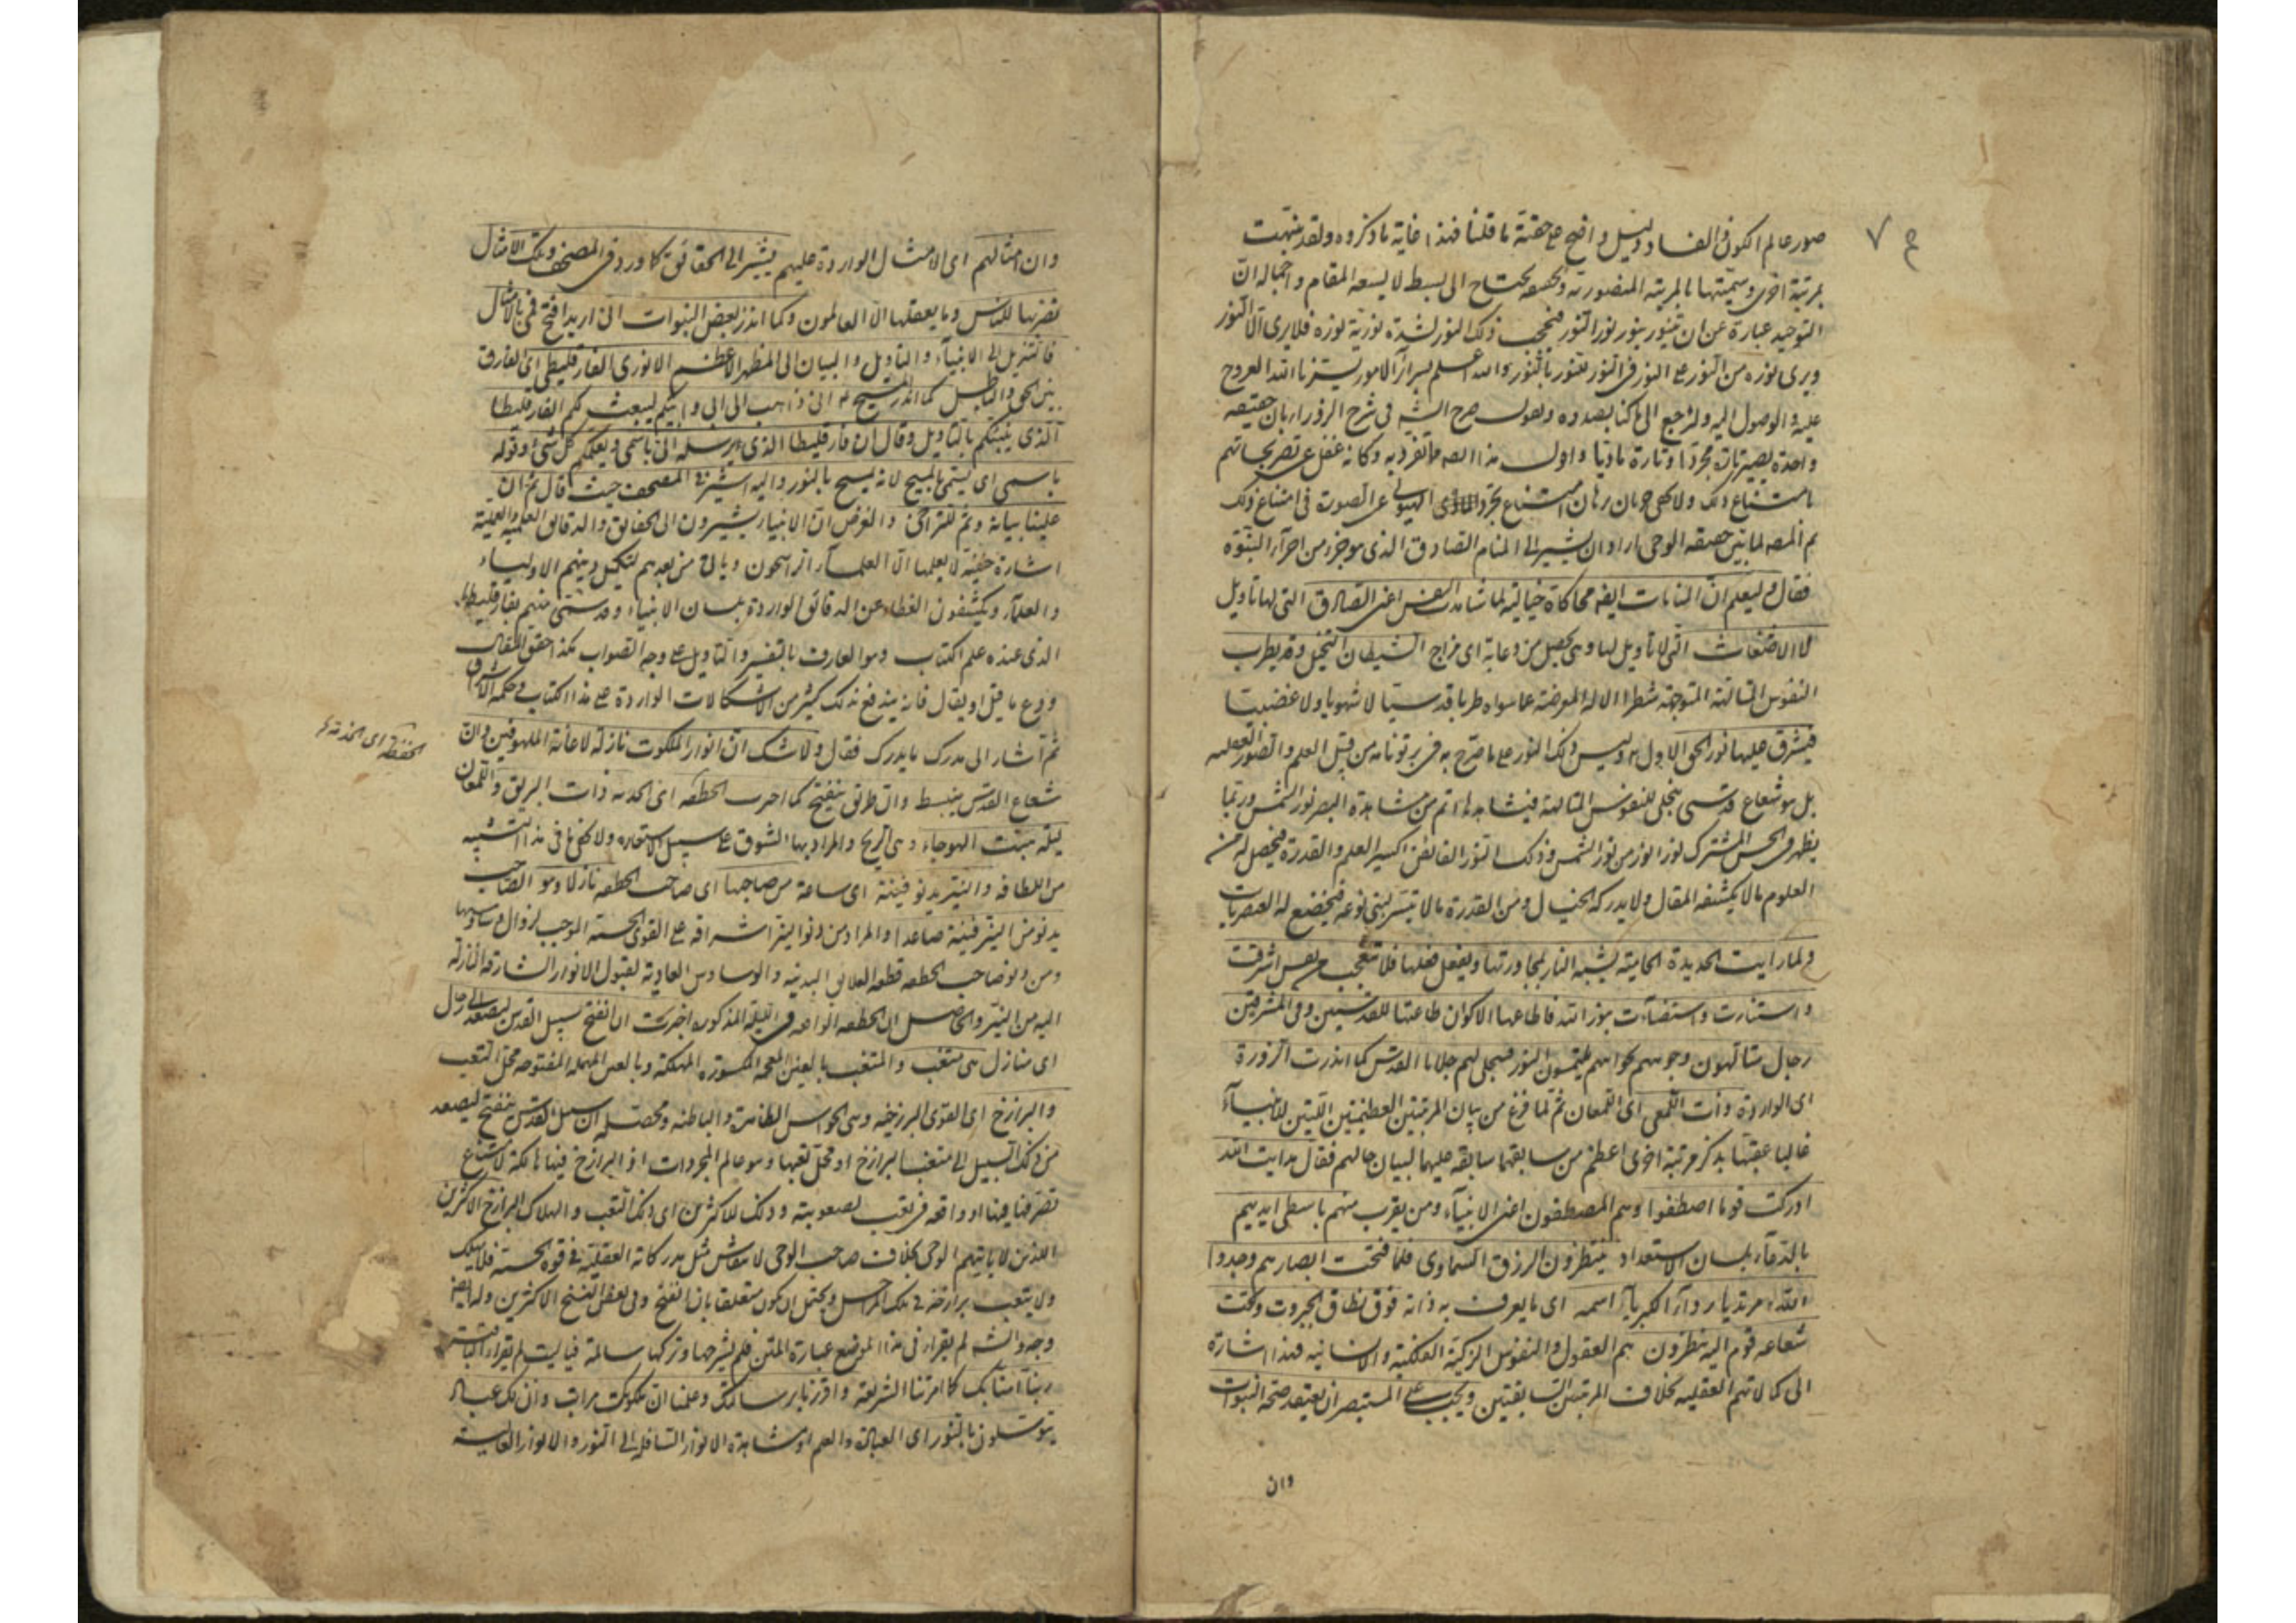 صور عالم الكون والفساد دليل واضح على حقية ما قلنا فهذا غاية ما ذكروه ولقد نبهت
بمرتبة اخرى وسميتها بالمرتبة المنصورية وتحقيقه يحتاج الى بسط لا يسعه المقام واجماله ان
التوحيد عبارة عن ان يتنور بنور نور النور فيحجب ذلك النور لشدة نوريته نوره فلا يرى الا النور
ويرى نوره من النور على النور فى النور بنور بالنور والله اعلم بسراير الامور يسرنا الله العروج
عليه والوصول اليه ولنرجع الى ما كنا بصدده ونقول صرح الشيخ فى شرح
واحدة يصير تارة مجردا وتارة ماديا واول هذا المص ما تفرد به وكانه غفل عن تصريحاتهم
بامتناع ذلك ولا يخفى جريان برهان امتناع تجرد الهيولى عن الصورة فى امتناع ذلك
ثم المص لما بين حقيقة الوحى اراد ان يشير الى المنام الصادق الذى هو جزء من اجزاء النبوة
فقال وليعلم ان المنامات ايضا محاكاة خيالية لما شاهدت النفس اعنى الصادق التى لها تاويل
لا الاضغاث التى لا تاويل لها وهى تحصل من دعابة اى مزاح الشيطان التخيل وقد يطرب
النفوس المتالهة المتوجهة شطر الاله المعرضة عما سواه طربا قدسيا لا شهويا ولا غضبيا
فيشرق عليها نور الحق الاول وليس ذلك النور على ما صرح به فى برتونامه من قبيل العلم والصور العقلية
بل هو شعاع قدسى يتجلى للنفوس المتالهة فيشاهدها اتم من مشاهدة البصر نور الشمس وربما
يظهر فى الحس المشترك نور انور من نور الشمس وذلك النور الفائض اكسير العلم والقدرة فيحصل له من
العلوم ما لا يكشفه المقال ولا يدركه الخيال ومن القدرة ما لا يتيسر لبنى نوعه فيخضع له العنصريات
ولما رايت الحديدة الحامية يشبه النار لمجاورتها ويفعل فعلها فلا تتعجب من نفس اشرقت
واستنارت واستضاءت بنور الله فاطاعها الاكوان طاعتها للقدسيين وفى المشرقين
رجال متالهون وجوههم يلتمسون النور فيتجلى لهم جلايا القدس كما انذرت الزورة
اى الواردة ذات اللمعى اى اللمعان ثم لما فرغ من بيان المرتبتين العظيمتين اللتين للانبياء
غالبا عقبها بذكر مرتبة اخرى اعظم من سابقها سابقة عليهما لبيان حالهم فقال هدايت الله
ادركت قوما اصطفوا وهم المصطفون اعنى الانبياء ومن يقرب منهم باسطى ايديهم
بالدعاء بلسان الاستعداد ينتظرون الرزق السماوى فلما فتحت ابصارهم وجدوا
الله مرتديا رداء الكبرياء اسمه اى ما يعرف به ذاته فوق نطاق الجبروت وتحت
شعاعه قوم اليه ينظرون هم العقول والنفوس الزكية الفلكية والانسانية فهذا اشارة
الى كمالاتهم العقلية بخلاف المرتبتين السابقتين ويجب على المستبصر ان يعتقد صحة النبوات
وان
وان امثالهم اى الامثال الواردة عليهم يشير الى الحقائق كما ورد فى المصحف وتلك الامثال
نضربها للناس وما يعقلها الا العالمون وكما انذر بعض النبوات انى اريد افتح فمى بالامثال
فالتنزيل الى الانبياء والتاويل والبيان الى المظهر الاعظم الانورى الفارقليطى اى الفارق
بين الحق والباطل كما انذر المسيح انى ذاهب الى ابى وابيكم ليبعث لكم الفارقليطا
الذى ينبئكم بالتاويل وقال ان فارقليطا الذى يرسله ابى باسمى ويعلمكم كل شئ وقوله
باسمى اى يسمى بالمسيح لانه يمسح بالنور واليه اشير فى المصحف حيث قال ثم ان
علينا بيانه وثم للتراخى والغرض ان الانبياء يشيرون الى الحقائق والدقائق العلمية والعملية
اشارة خفية لا يعلمها الا العلماء الراسخون وياتى من بعدهم لتكميل دينهم الاولياء
والعلماء ويكشفون الغطاء عن الدقائق الواردة بلسان الانبياء وقد يسمى منهم بفارقليطا
الذى عنده علم الكتاب وهو العارف بالتفسير والتاويل على وجه الصواب هكذا حقق المقال
ودع ما قيل او يقال فانه يندفع به لك كثير من الاشكالات الواردة على هذا الكتاب وحكمة الاشراق
ثم اشار الى مدرك ما يدرك فقال ولا شك ان انوار الملكوت نازلة لاغاثة الملهوفين وان
شعاع القدس ينبسط وان طريق الحق ينفتح كما اخبرت الخطفة اى الخدسة ذات البريق واللمعان
ليلة هبت الهوجاء وهى الريح والمراد بها الشوق على سبيل الاستعارة ولا يخفى ما فى هذا التشبيه
من اللطافة والنير يدنو فينة اى ساعة من صاحبها اى صاحب الخطفة نازلا وهو الصاحب
يدنو من النير فينة صاعدا والمراد من دنو النير اشراقه على القوى الحسية الموجب لزوال وساوسها
ومن دنو صاحب الخطفة قطعه العلائق البدنية والوساوس العادية لقبول الانوار الشارقة النازلة
اليه من النير والحاصل ان الخطفة الواقعة فى الليلة المذكورة اخبرت ان انفتح سبيل القدس ليصعد الى
اى منازل هى متغب والمتغب بالغين المعجمة المكسورة المهلكة وبالعين المهملة المفتوحة محل التعب
والبرازخ اى القوى البرزخية وهى الحواس الظاهرة والباطنة ومحصله ان سبيل القدس ينفتح ليصعد
من ذلك السبيل الى متغب البرازخ او محل تعبها وهو عالم المجردات اذ البرازخ فيها هالكة لامتناع
تصرفها فيها او واقعة فى تعب لصعوبته وذلك للاكثرين اى ذلك التعب والهلاك لبرازخ الاكثرين
الذين لا ياتيهم الوحى بخلاف صاحب الوحى لانتقاش مثل مدركاته العقلية فى قوه الحسية فلا يهلك
ولا يتعب برازخه فى تلك المراحل ويحتمل ان يكون متعلقا بان انفتح وفى بعض النسخ الاكثرين وله ايضا
وجه والشيخ لم يقرأ فى هذا الموضع عبارة المتن فلم يشرحها وتركها سالمة فياليت لم يقرأ
ربنا آمنا بك كما امرتنا الشريعة واقررنا برسالتك وعلمنا ان لملكوتك مراتب وان لك عبادا
يتوسلون بالنور اى العبادة والعلم او مشاهدة الانوار السافلة الى النور والانوار العالية
الخطفة اى الخدسة